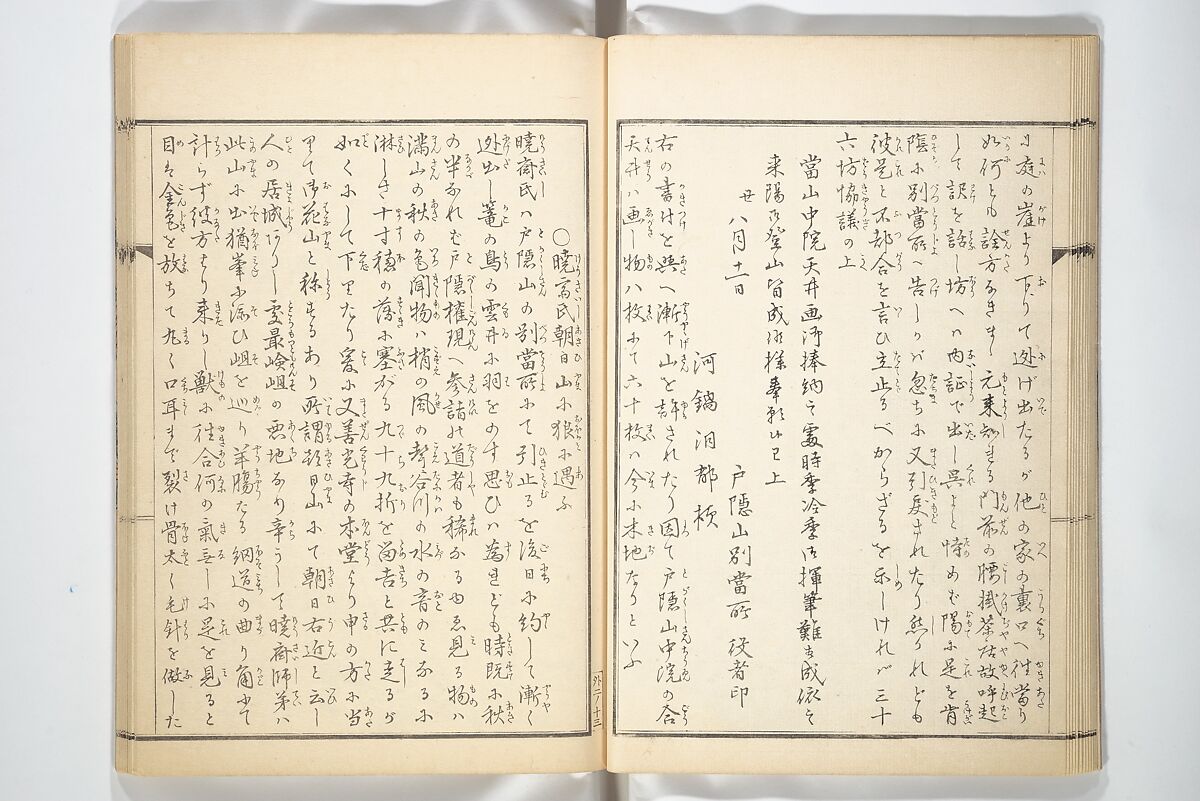 に庭の崖より下りて逃げ出たるが他の家の裏口へ往當り
如何とも詮方なきまゝ元來知まる門前の腰掛茶店故呼起
して訳を話し坊へハ内証で出し呉よと恃めバ陽に足を肯
陰に別當所へ告しかバ忽ちに又引戻されたり然れども
彼是と不都合を言ひ立止るべからざるを示しけれバ三十
六坊協議の上
當山中院天井画御捧納之處時季冷季御揮筆難出成依之
来陽御登山皆成候樣奉願候已上
廿八月十二日
戸隠山別當所役者印
河鍋洞郁殿
右の書付を與へ漸下山を許されたり因て戸隠山中院の合
天井ハ画し物ハ枚にて六十枚ハ今に木地なりといふ
○暁斎氏朝日山に狼に遇ふ
暁斎氏ハ戸隠山の別當所にて引止るを後日に約して漸く
逃出し篭の鳥の雲井に羽をのす思ひハ為せども時既に秋
の半なれバ戸隠權現へ参詣の道者も稀なるゆゑ見る物ハ
滿山の秋の色聞物ハ梢の風の聲谷川の水の音のミなるに
淋しき十寸穂の落に塞がる九十九折を歯吉と共に走るが
如くにして下りたり爰に又善光寺の本堂より申の方に当
りて御花山と称するあり所謂朝日山にて朝日右近と云し
人の居城ありし處最嶮岨の悪地なり辛うして暁斎師弟ハ
此山に出猶峯に添ひ岨を巡り羊腸たる細道の曲り角にて
計らず彼方より来りし獣に往合何の氣無しに是を見ると
目は金色を放ちて丸く口耳まで裂け骨太く毛針を倣した
外二ノ十三